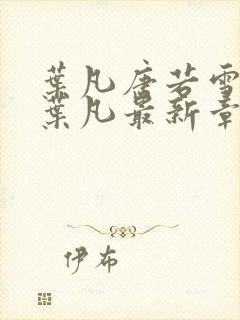 葉凡唐若雪
葉凡最新章
伊布